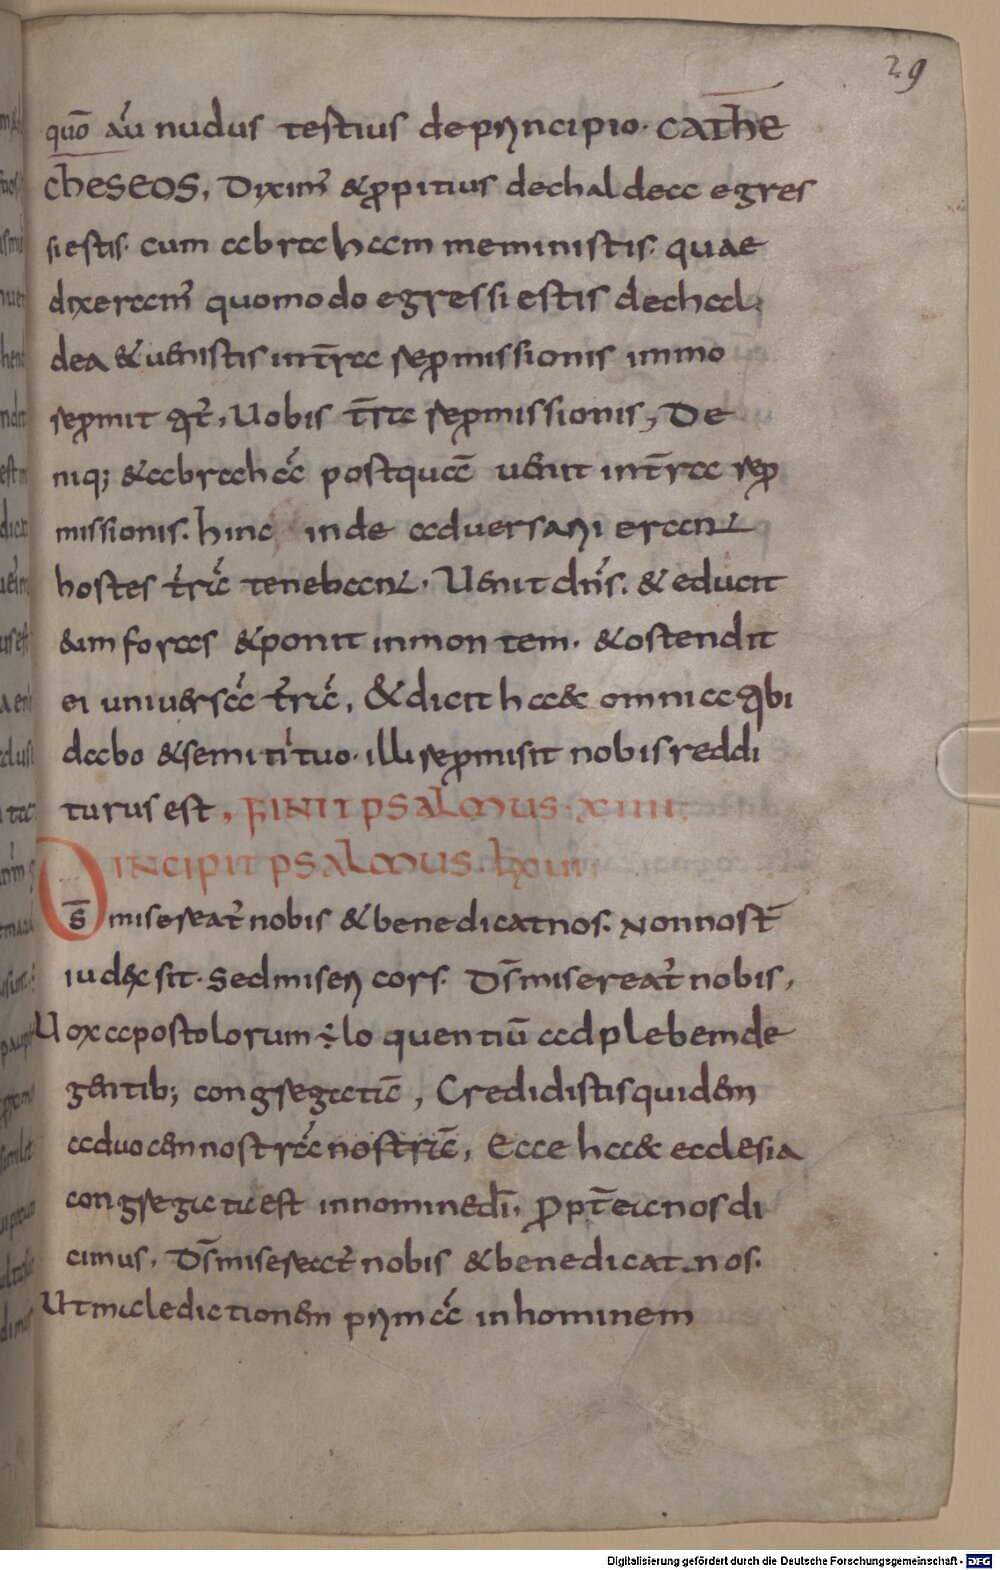 29
quō au̓ nudus testius deprincipio. CATHE
CHESEOS, Dixim̓ & ꝓpitius de chaldea egres
si estis. cum abraham meministis. quae
dixeram̓ quomodo egressi estis dechal
dea & uenistis int̄ra repmissionis immo
repmit qt̓, Uobis t̄ra repmissionis, De
niq; & abrahā postquā uenit int̄ra rep
missionis. hinc inde aduersarii erant
hostes t̄rā tenebant. Uenit dn̄s. & educit
eum foras & ponit inmontem. & ostendit
ei uniuersā t̄rā, & dicit haec omnia qbi
dabo & semini tuo. illi repmisit nobis reddi
turus est, FINIT PSALMUS. XIIII.
INCIPIT PSALMUS. lxvi.
Ds̄ misereat̓ nobis & benedicat nos. Non nost̄
iudex sit. Sed misericors. Ds̄ misereat̓ nobis,
Uox apostolorum ÷ loquentiū ad plebem de
gentib; congregatā, Credidistis quidem
aduocem nostrā nostrā, Ecce haec ecclesia
congregata est in nomine dī. ꝓpt̄ea nos di
cimus. Ds̄ misereat̓ nobis & benedicat nos.
Ut maledictionem primā in hominem
Digitalisierung gefördert durch die Deutsche Forschungsgemeinschaft - DFG